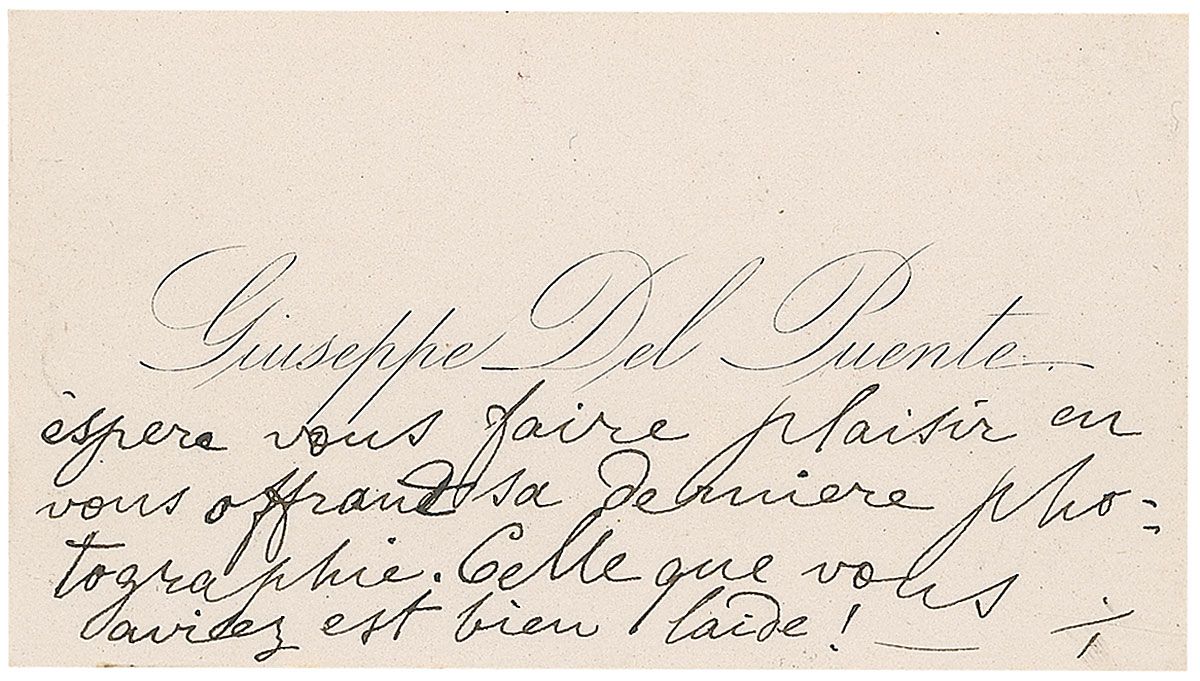 Giuseppe Del Puente
éspere vous faire plaisir en
vous offrand sa derniere pho=
tographie. Celle que vous
aviez est bien laide! —